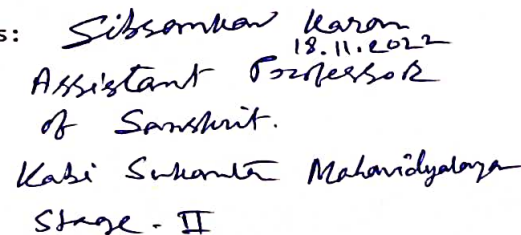 s: Sibsankar Karan
18.11.2022
Assistant Professor
of Sanskrit.
Kabi Sukanta Mahavidyalaya
Stage - II